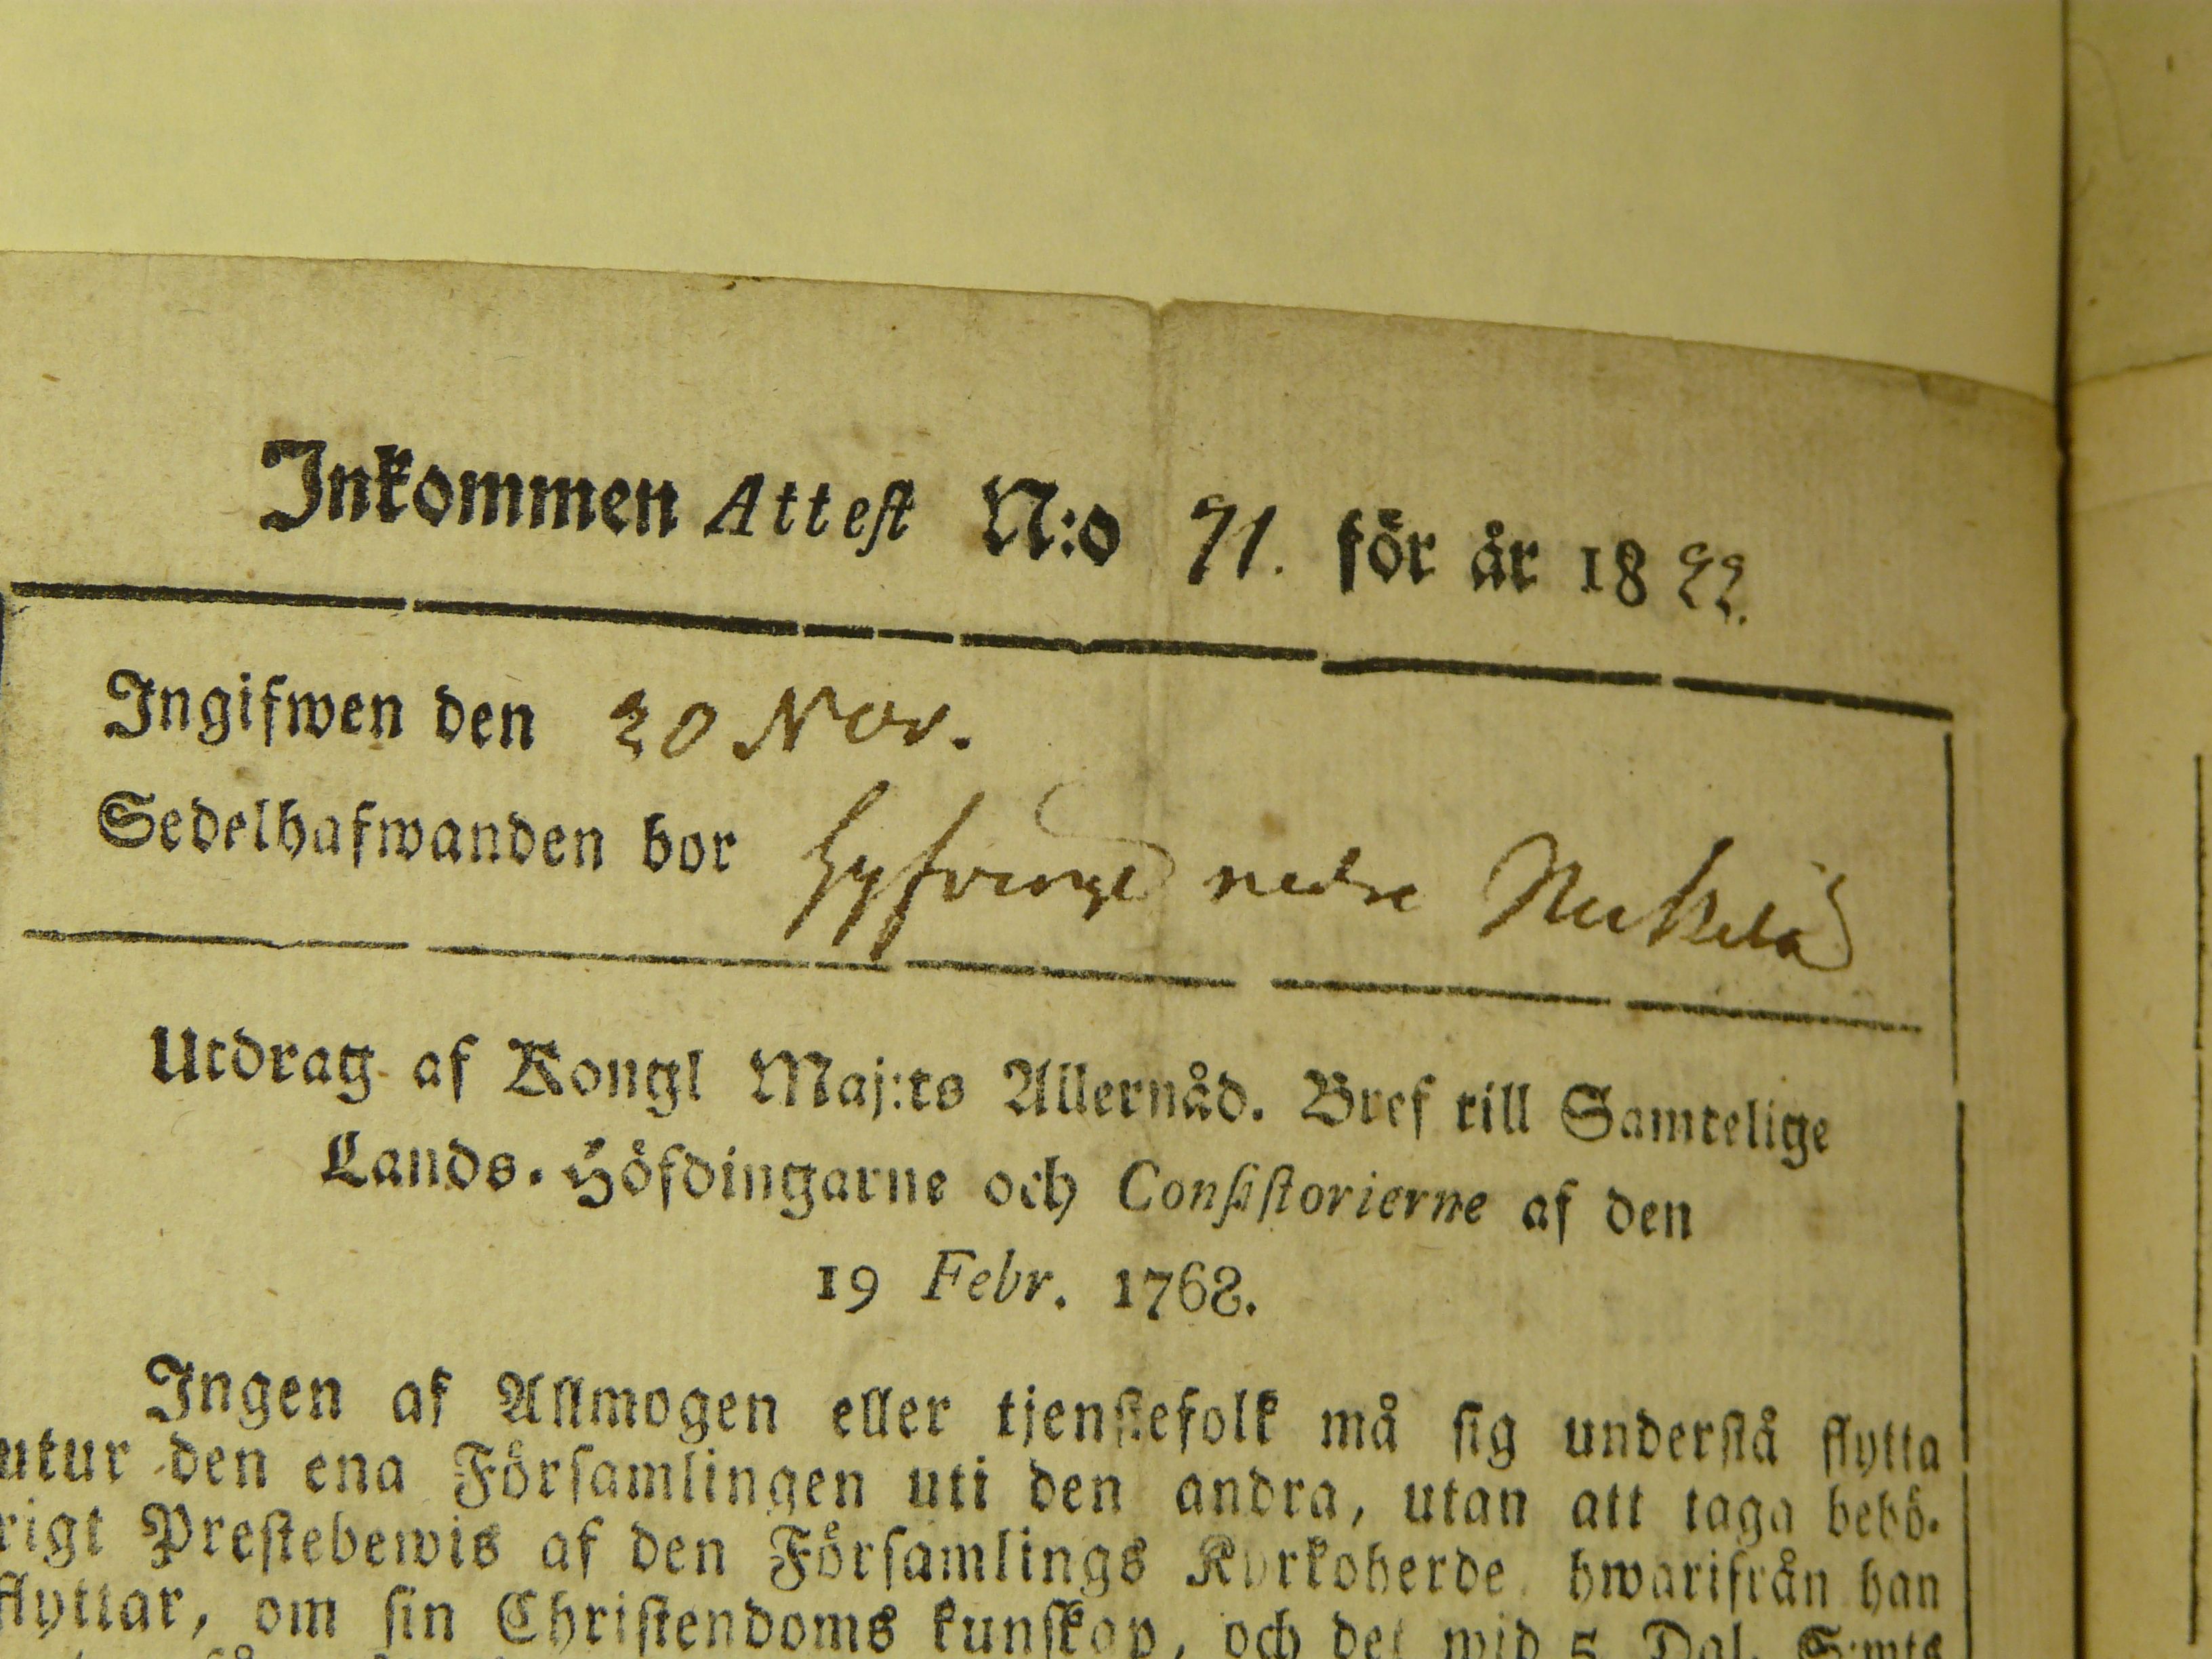 Inkommen Attest N:o 71. för år 1822.
Ingifwen den 20 Nov.
Sedelhafwanden bor nedre
Utdrag af Kongl Maj:ts Allernåd. Bref till Samtelige
Lands-Höfdingarne och Consistorierne af den
19 Febr. 1768.
Ingen af Allmogen eller tjenstefolk må sig understå flytta
utur den ena Församlingen uti den andra, utan att taga behö-
rigt Prestebewis af den Församlings Kyrkoherde hwarifrån han
flyttar, om sin Christendoms kunskap, och det wid 5 Dal. S:mts